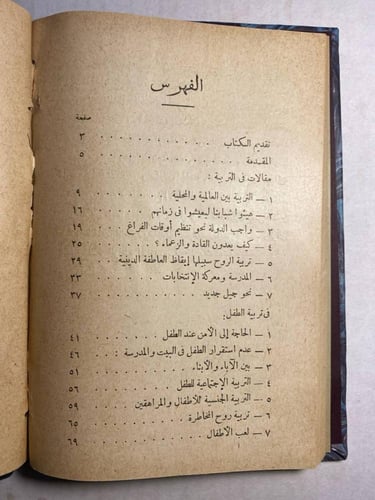 الفهرس
صفحة
تقديم الكتاب . . . . . . . . . . ٣
المقدمة . . . . . . . . . . ٥
مقالات فى التربية :
١ — التربية بين العالمية والمحلية . . . . ٩
٢ — هيئوا شبابنا ليعيشوا فى زمانهم . . . ١٦
٣ — واجب الدولة نحو تنظيم أوقات الفراغ . . ١٩
٤ — كيف يعدون القادة والزعماء ؟ . . . . ٢٥
٥ — تربية الروح سبيلها إيقاظ العاطفة الدينية . ٢٩
٦ — المدرسة ومعركة الإنتخابات . . . . ٣٣
٧ — نحو جيل جديد . . . . . . . ٣٧
فى تربية الطفل:
١ — الحاجة إلى الأمن عند الطفل . . . . ٤١
٢ — عدم استقرار الطفل فى البيت والمدرسة . . ٤٦
٣ — بين الآباء والأبناء . . . . . . ٥١
٤ — التربية الإجتماعية للطفل . . . . . ٥٦
٥ — التربية الجنسية للأطفال والمراهقين . . . ٥٩
٦ — تربية روح المخاطرة . . . . . . ٦٥
٧ — لعب الأطفال . . . . . . . ٦٩